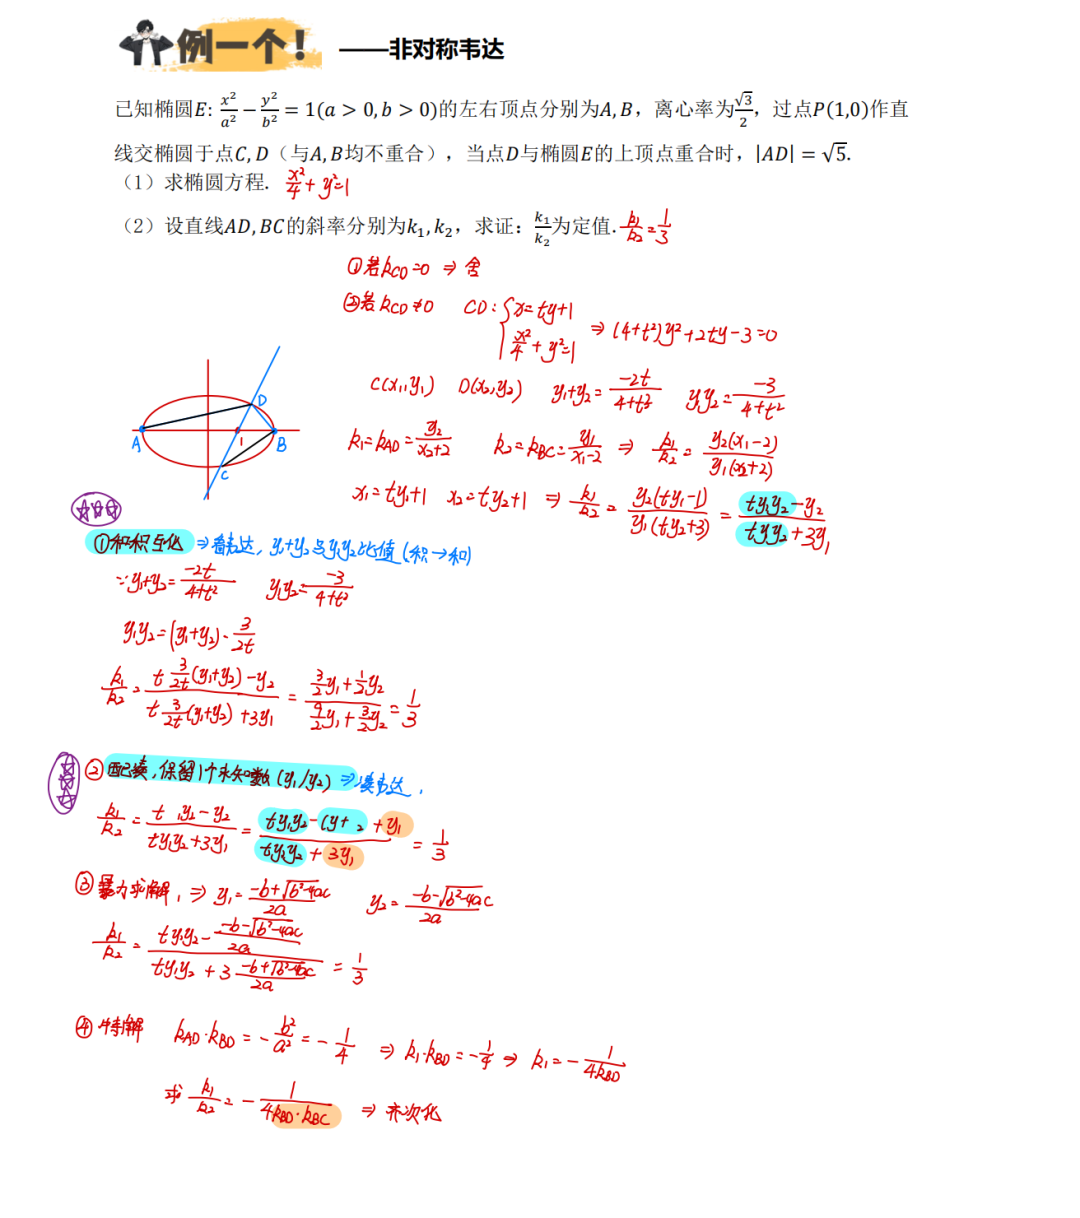 例一个！ ——非对称韦达
已知椭圆E: x²/a² − y²/b² = 1(a > 0, b > 0)的左右顶点分别为A, B，离心率为√3/2，过点P(1,0)作直
线交椭圆于点C, D（与A, B均不重合），当点D与椭圆E的上顶点重合时，|AD| = √5.
（1）求椭圆方程. x²/4 + y² = 1
（2）设直线AD, BC的斜率分别为k₁, k₂，求证：k₁/k₂为定值. k₁/k₂ = 1/3
①若k_CD = 0 ⇒ 舍
②若k_CD ≠ 0 CD: { x = ty+1
x²/4 + y² = 1 ⇒ (4+t²)y² + 2ty − 3 = 0
C(x₁,y₁) D(x₂,y₂) y₁+y₂ = −2t/(4+t²) y₁y₂ = −3/(4+t²)
k₁ = k_AD = y₂/(x₂+2) k₂ = k_BC = y₁/(x₁−2) ⇒ k₁/k₂ = y₂(x₁−2)/y₁(x₂+2)
x₁ = ty₁+1 x₂ = ty₂+1 ⇒ k₁/k₂ = y₂(ty₁−1)/y₁(ty₂+3) = (ty₁y₂−y₂)/(ty₁y₂+3y₁)
A
B
C
D
1
①和积互化 ⇒ 看韦达，y₁+y₂与y₁y₂比值（积→和）
∵ y₁+y₂ = −2t/(4+t²) y₁y₂ = −3/(4+t²)
y₁y₂ = (y₁+y₂)·3/2t
k₁/k₂ = (t 3/2t (y₁+y₂) − y₂)/(t 3/2t (y₁+y₂) + 3y₁) = (3/2 y₁ + 1/2 y₂)/(9/2 y₁ + 3/2 y₂) = 1/3
②配凑，保留1个未知数(y₁/y₂) ⇒ 凑韦达，
k₁/k₂ = (t y₁y₂ − y₂)/(ty₁y₂+3y₁) = (ty₁y₂ − (y+ ₂ + y₁)/(ty₁y₂ + 3y₁) = 1/3
③暴力求解，⇒ y₁ = (−b+√(b²−4ac))/2a y₂ = (−b−√(b²−4ac))/2a
k₁/k₂ = (ty₁y₂ − (−b−√(b²−4ac))/2a)/(ty₁y₂ + 3 (−b+√(b²−4ac))/2a) = 1/3
④特解 k_AD·k_BD = −b²/a² = −1/4 ⇒ k₁·k_BD = −1/4 ⇒ k₁ = −1/4k_BD
求 k₁/k₂ = −1/(4k_BD·k_BC) ⇒ 齐次化